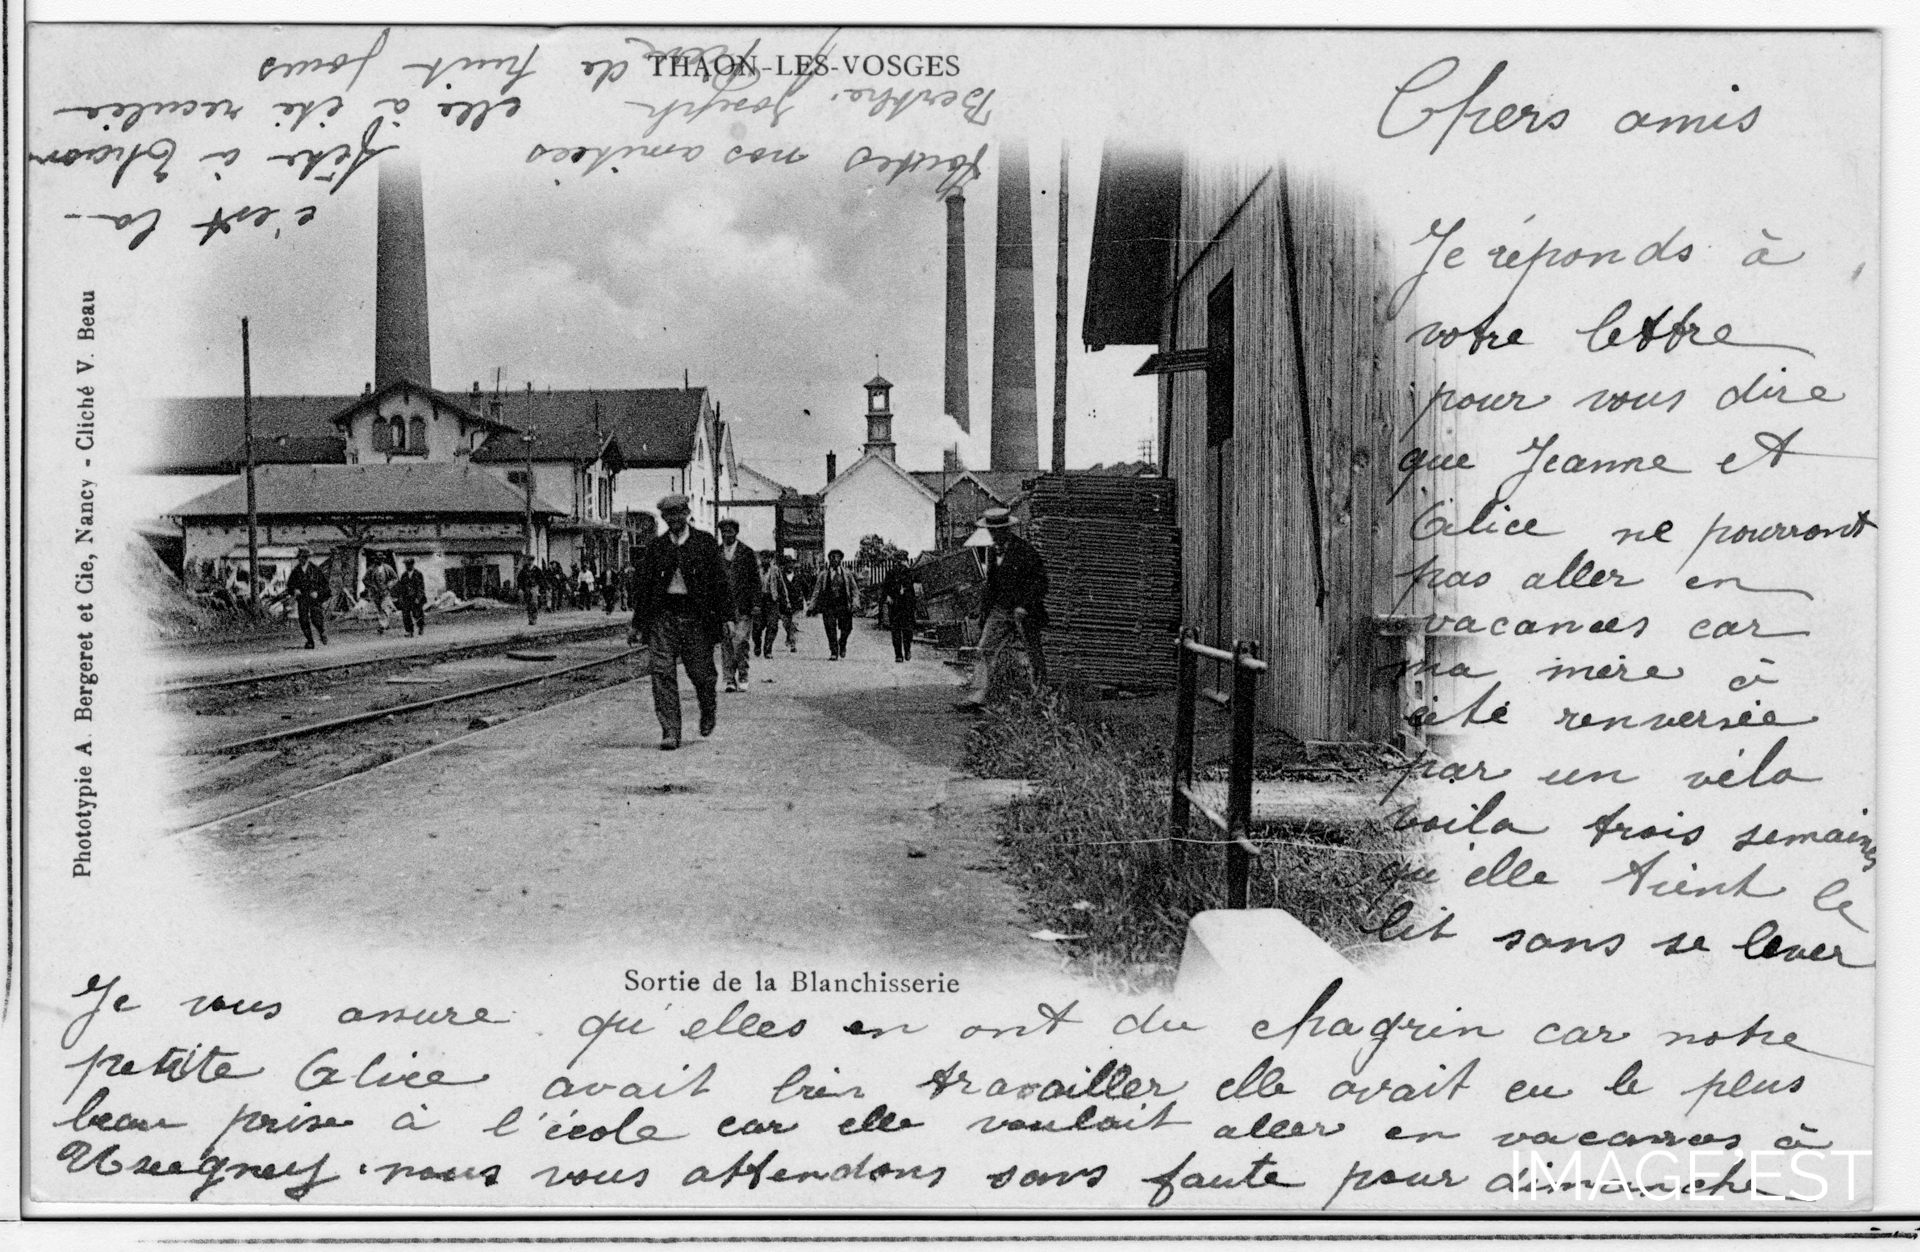 THAON-LES-VOSGES
Chers amis
Je réponds à
votre lettre
pour vous dire
que Jeanne et
Alice ne pourront
pas aller en
vacances car
ma mère à
été renversée
par un vélo
voila trois semaines
qu'elle tient le
lit sans se lever
Je vous assure qu'elles en ont du chagrin car notre
petite Alice avait bien travailler elle avait eu le plus
beau prise à l'école car elle voulait aller en vacances à
nous vous attendons sans faute pour dimanche
c'est la
fête à Thaon
elle à été reculée
de huit jours
Toutes nos amitiées
Berthe. Joseph
Sortie de la Blanchisserie
Phototypie A. Bergeret et Cie, Nancy - Cliché V. Beau
IMAGE'EST